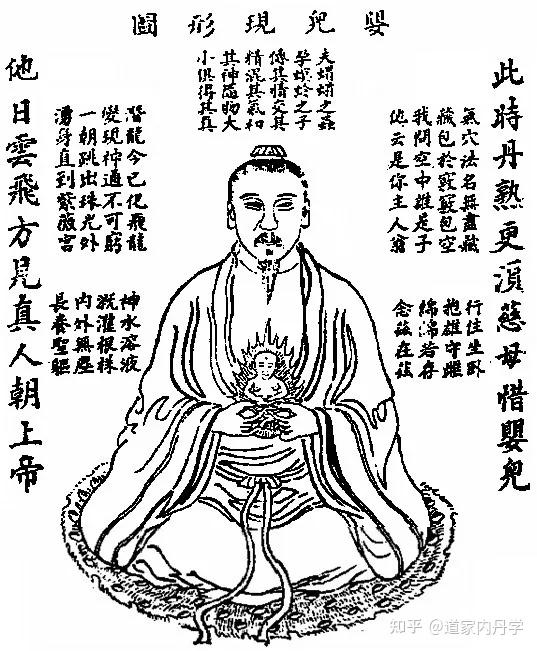 嬰兒現形圖
此時丹熟更須慈母惜嬰兒
氣穴法名無盡藏
藏包於竅竅包空
我問空中誰是子
他云是你主人翁
行住坐臥
抱雄守雌
綿綿若存
念茲在茲
夫蜾蠃之蟲
孕螟蛉之子
傳其情交其
精混其氣和
其神隨物大
小俱得其真
潛龍今已化飛龍
變現神通不可窮
一朝跳出珠光外
湧身直到紫薇宮
神水溶液
溉灌根株
內外無塵
長養聖軀
他日雲飛方見真人朝上帝
知乎 @道家内丹学